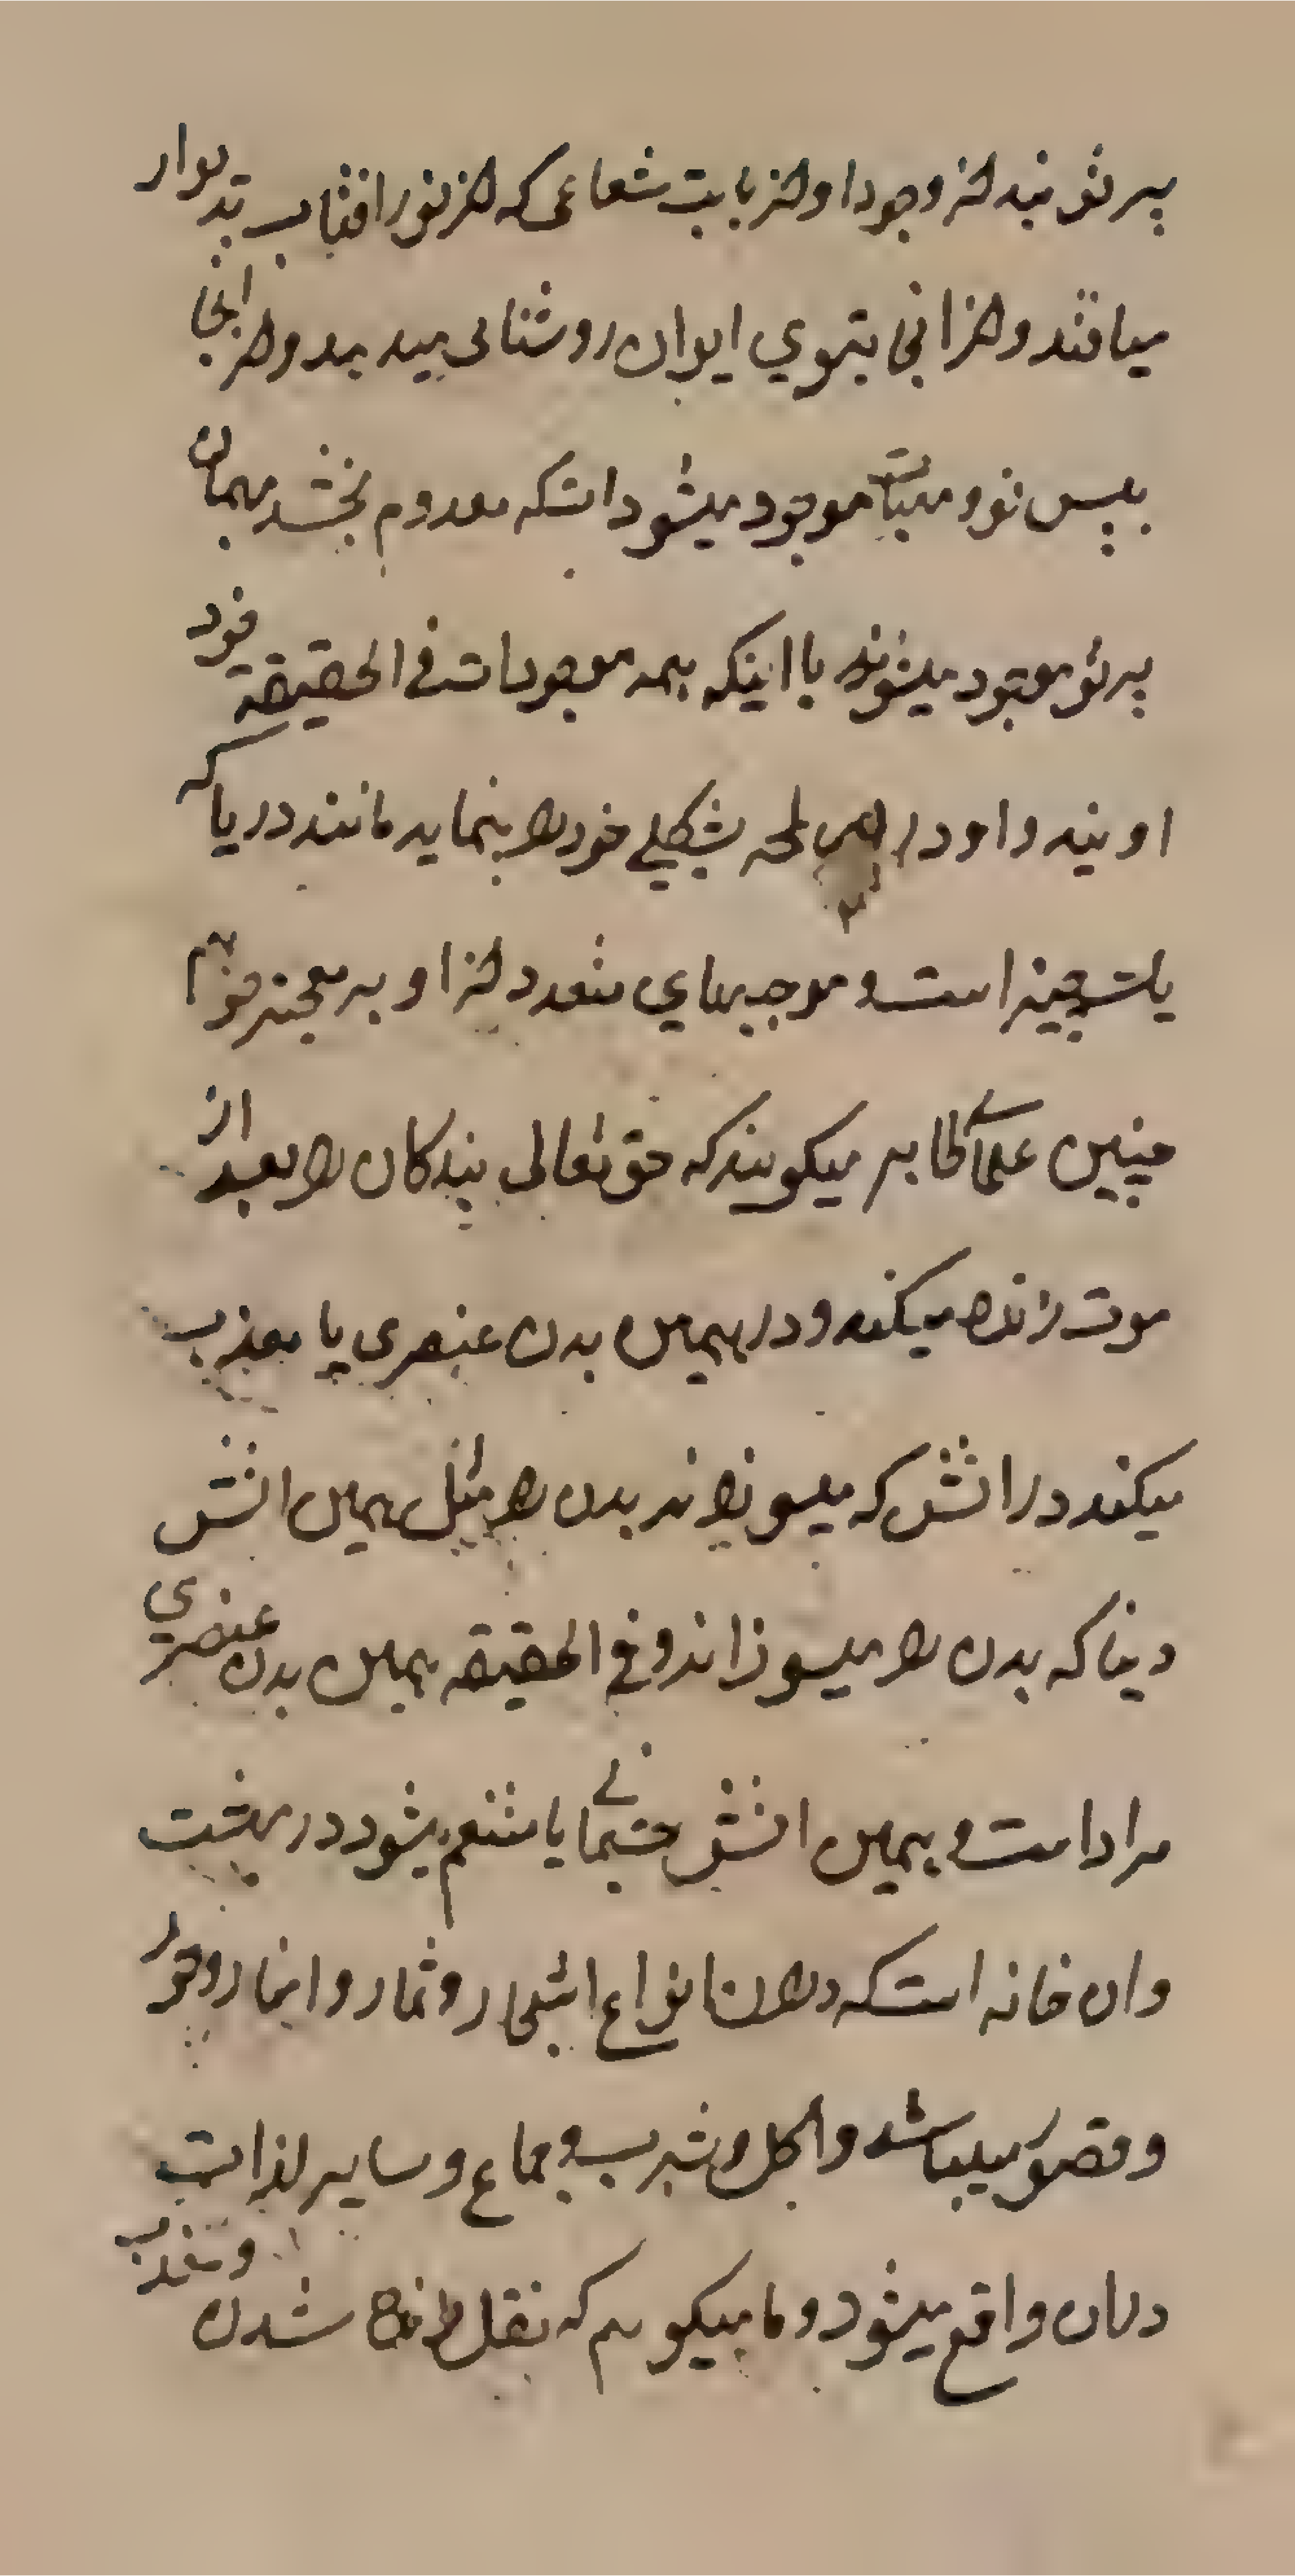 پرتو نیند از وجود او از بابت شعاعی که از نور افتاب بدیوار
میافتد و از انجا بتوی ایوان روشنائی میدهد و از انجا
بپس تو و میتابد موجود میشود انستکه معدوم نخشد بهمان
پرتو موجود میشوند با اینکه همه موجودات فی الحقیقة خود
اویند و او در هر لمحه بشکلی خود را بنماید مانند دریا که
یک چیز است و موجهای متعدد از او بر میخیزد و هم
چنین علمای ظاهر میکویند که حق تعالی بندکان را بعد از
موت زنده میکند و در همین بدن عنصری یا معذب
میکند در اتش که میسوزاند بدن را مثل همین اتش
دنیا که بدن را میسوزاند و فی الحقیقه همین بدن عنصری
مراد است و بهمین اتش جسمانی یا متنعم میشود در بهشت
وان خانه است که در ان انواع اشجار و ثمار و انهار و حور
و قصور میباشد و اکل و شرب و جماع و سایر لذات
در ان واقع میشود و ما میکویم که نقل زنده شدن و معذب